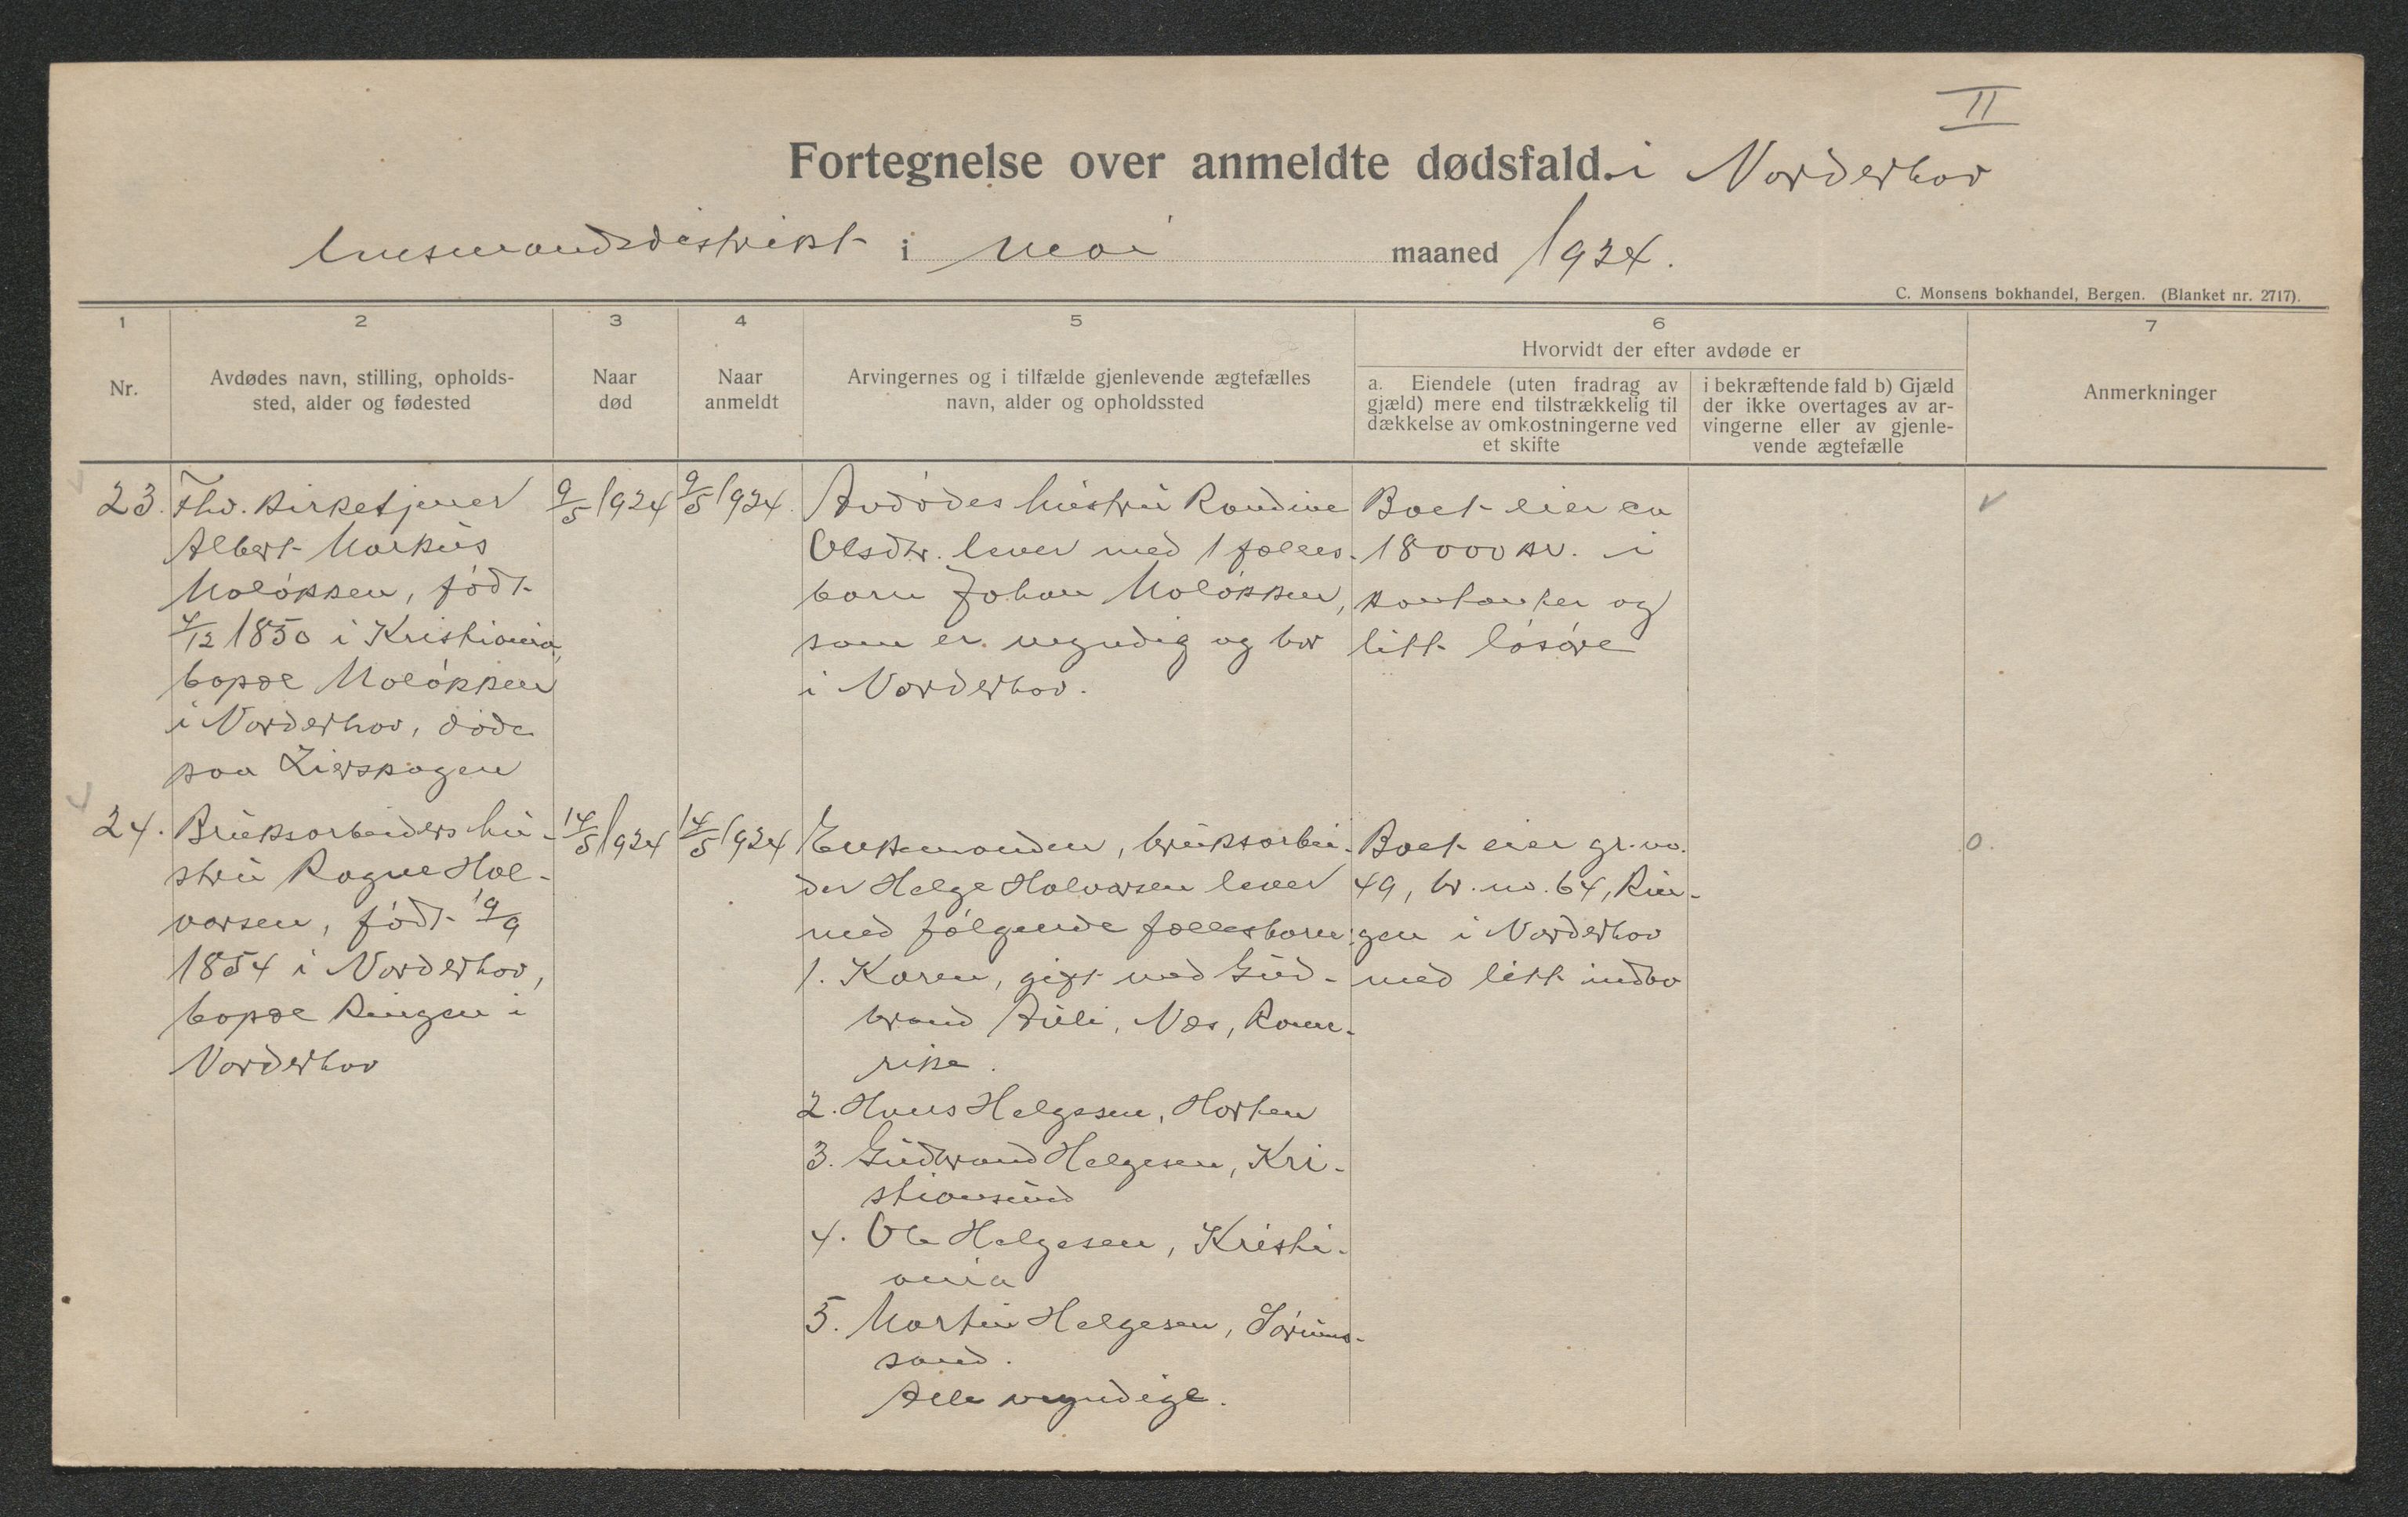 II
Fortegnelse over anmeldte dødsfald. i Norderhov
lensmandsdistrikt i mai maaned 1924.
C. Monsens bokhandel, Bergen. (Blanket nr. 2717).
1 2 3 4 5 6 7
Nr.
Avdødes navn, stilling, opholds-
sted, alder og fødested
Naar
død
Naar
anmeldt
Arvingernes og i tilfælde gjenlevende ægtefælles
navn, alder og opholdssted
Hvorvidt der efter avdøde er
a. Eiendele (uten fradrag av
gjæld) mere end tilstrækkelig til
dækkelse av omkostningerne ved
et skifte
i bekræftende fald b) Gjæld
der ikke overtages av ar-
vingerne eller av gjenle-
vende ægtefælle
Anmerkninger
23. Fhv. kirketjener
Albert Markus
Moløkken, født
4/12 1850 i Kristiania,
bopæl Moløkken
i Norderhov, døde
paa Lierskogen
9/5 1924
9/5 1924.
Avdødes hustru Randine
Olsdtr. lever med 1 fælles-
barn Johan Moløkken,
som er myndig og bor
i Norderhov.
Boet eier ca
18000 kr. i
kontanter og
litt løsøre
24. Bruksarbeiders hu-
stru Ragne Hal-
vorsen, født 19/9
1854 i Norderhov,
bopæl Ringen i
Norderhov
14/5 1924
14/5 1924
Enkemanden, bruksarbei-
der Helge Halvorsen lever
med følgende fællesbarn:
1. Karen, gift med Gud-
brand Auli, Nes, Rome-
rike.
2. Hans Helgesen, Horten
3. Gudbrand Helgesen, Kri-
stiansund
4. Ole Helgesen, Kristi-
ania
5. Martin Helgesen, Sørum-
sand.
Alle myndige.
Boet eier gr. no.
49, br. no. 64, Rin-
gen i Norderhov
med litt indbo
0.